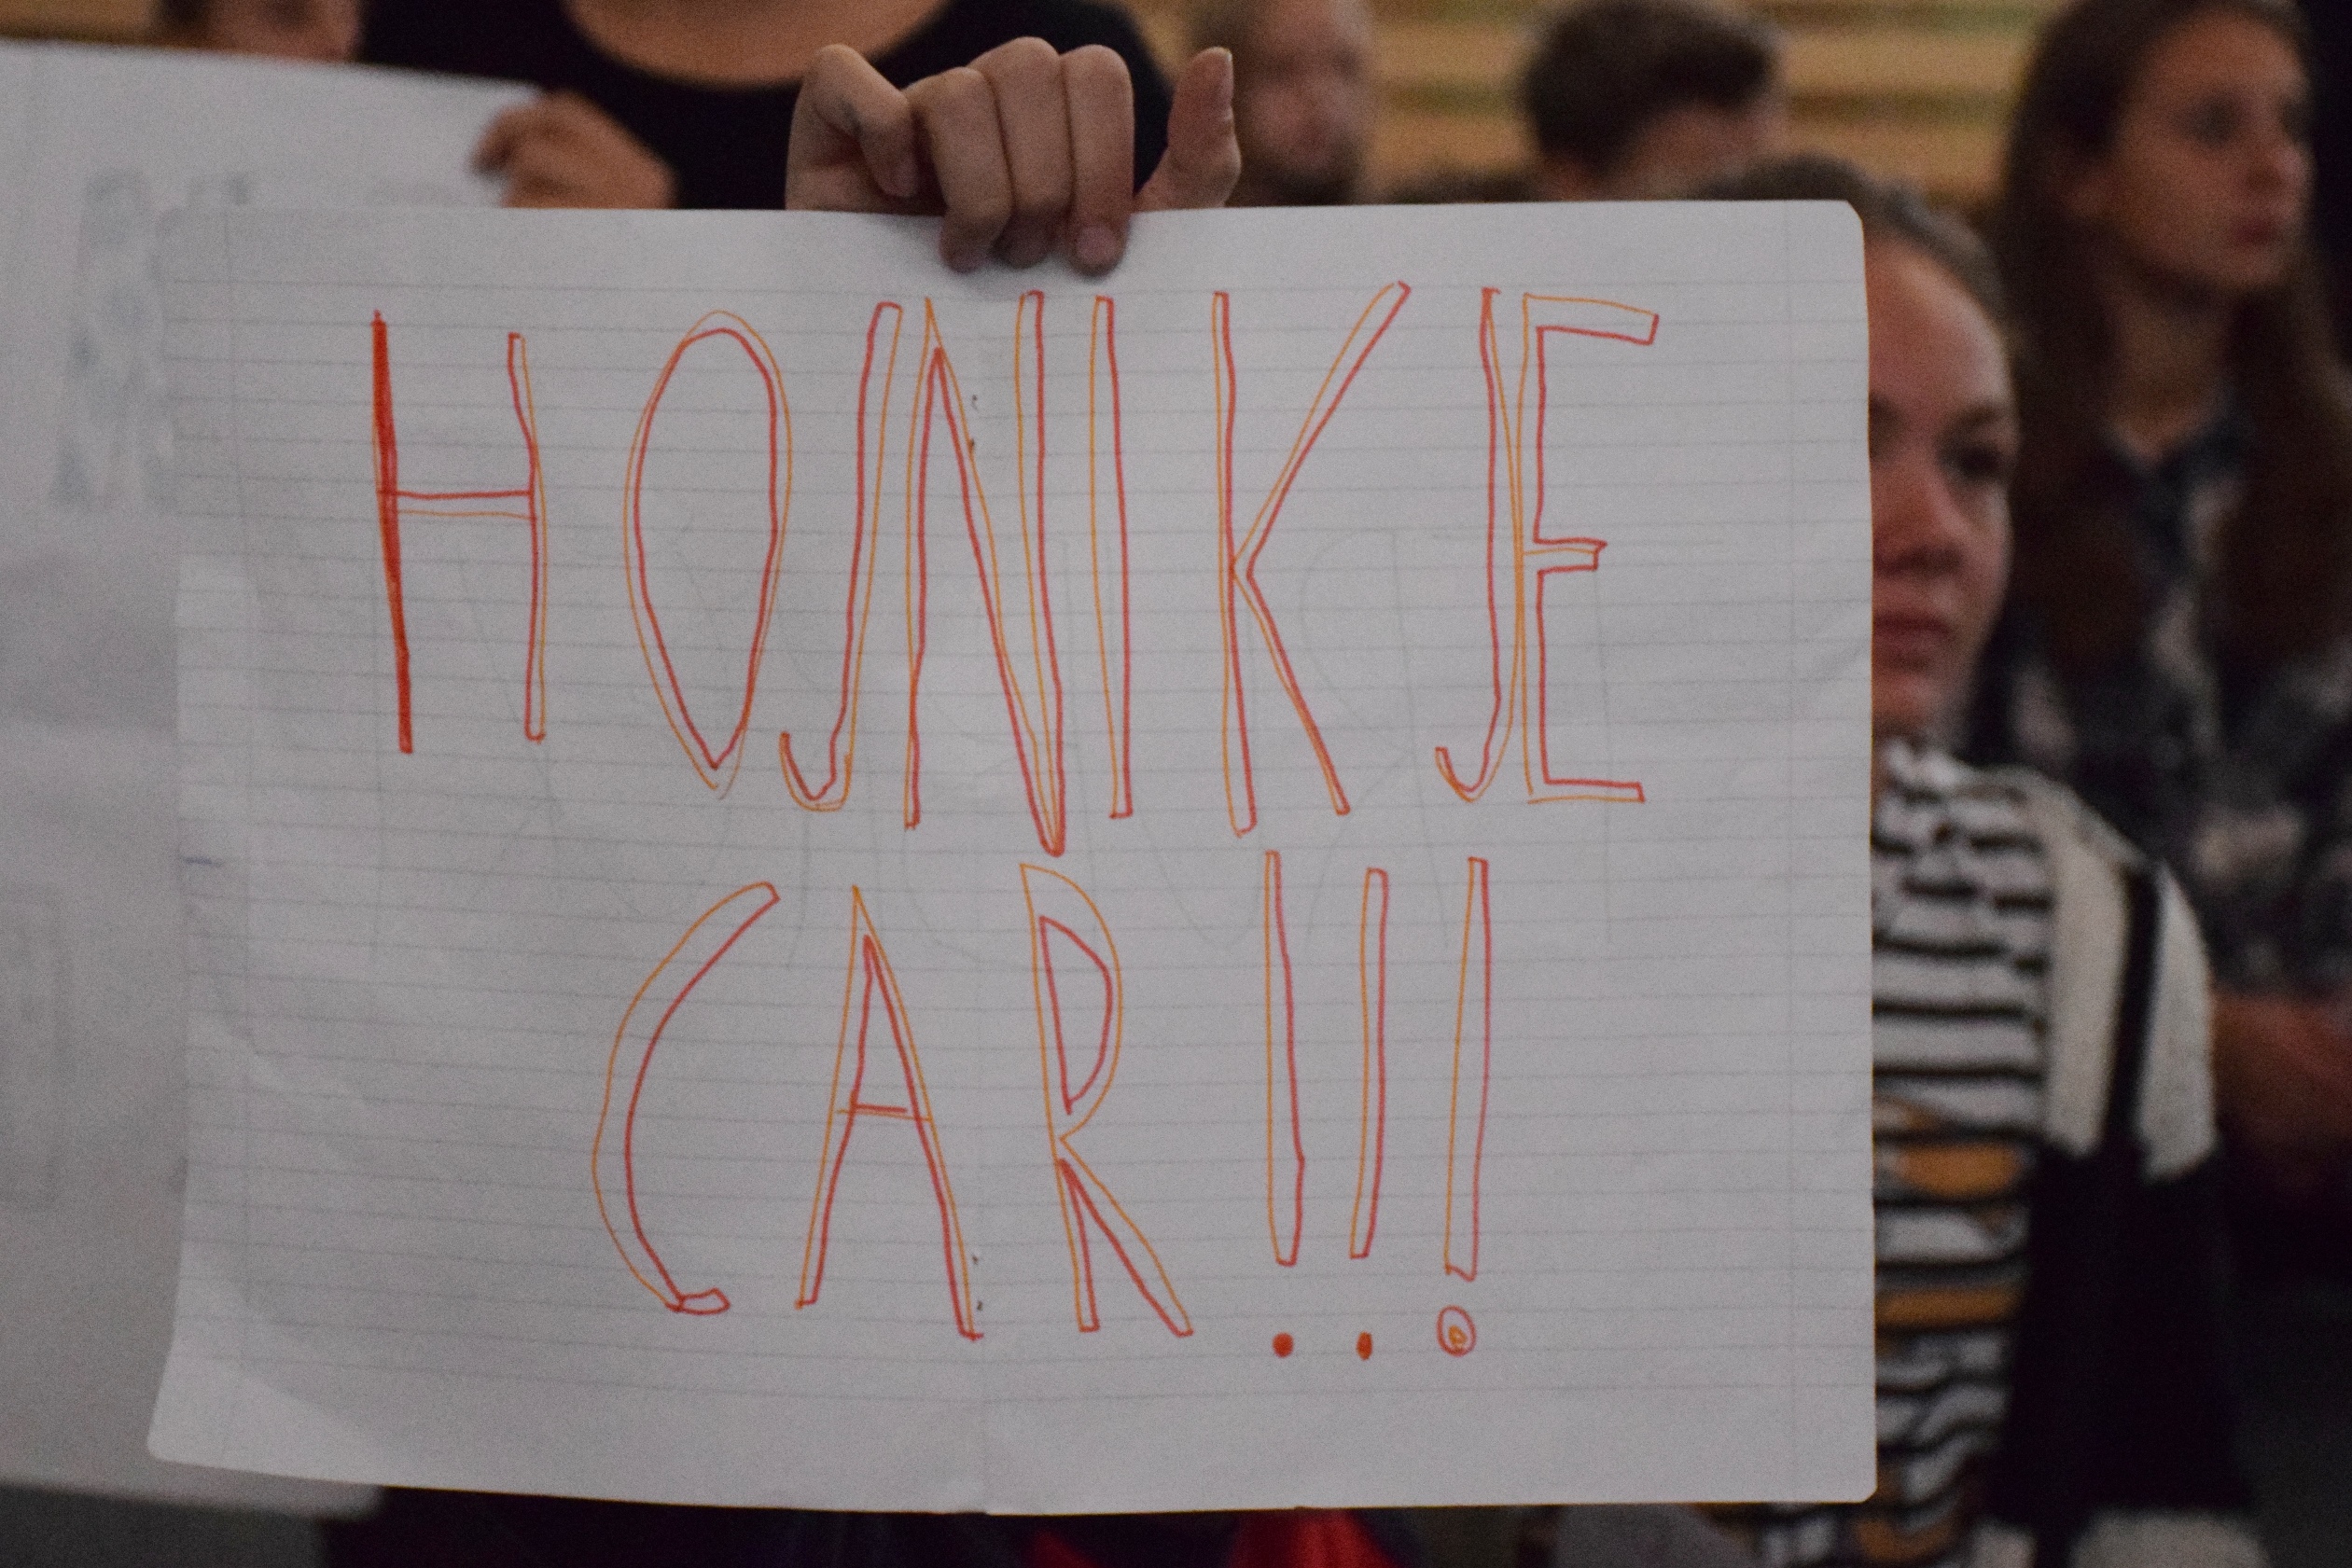 HOJNIK JE
CAR!!!